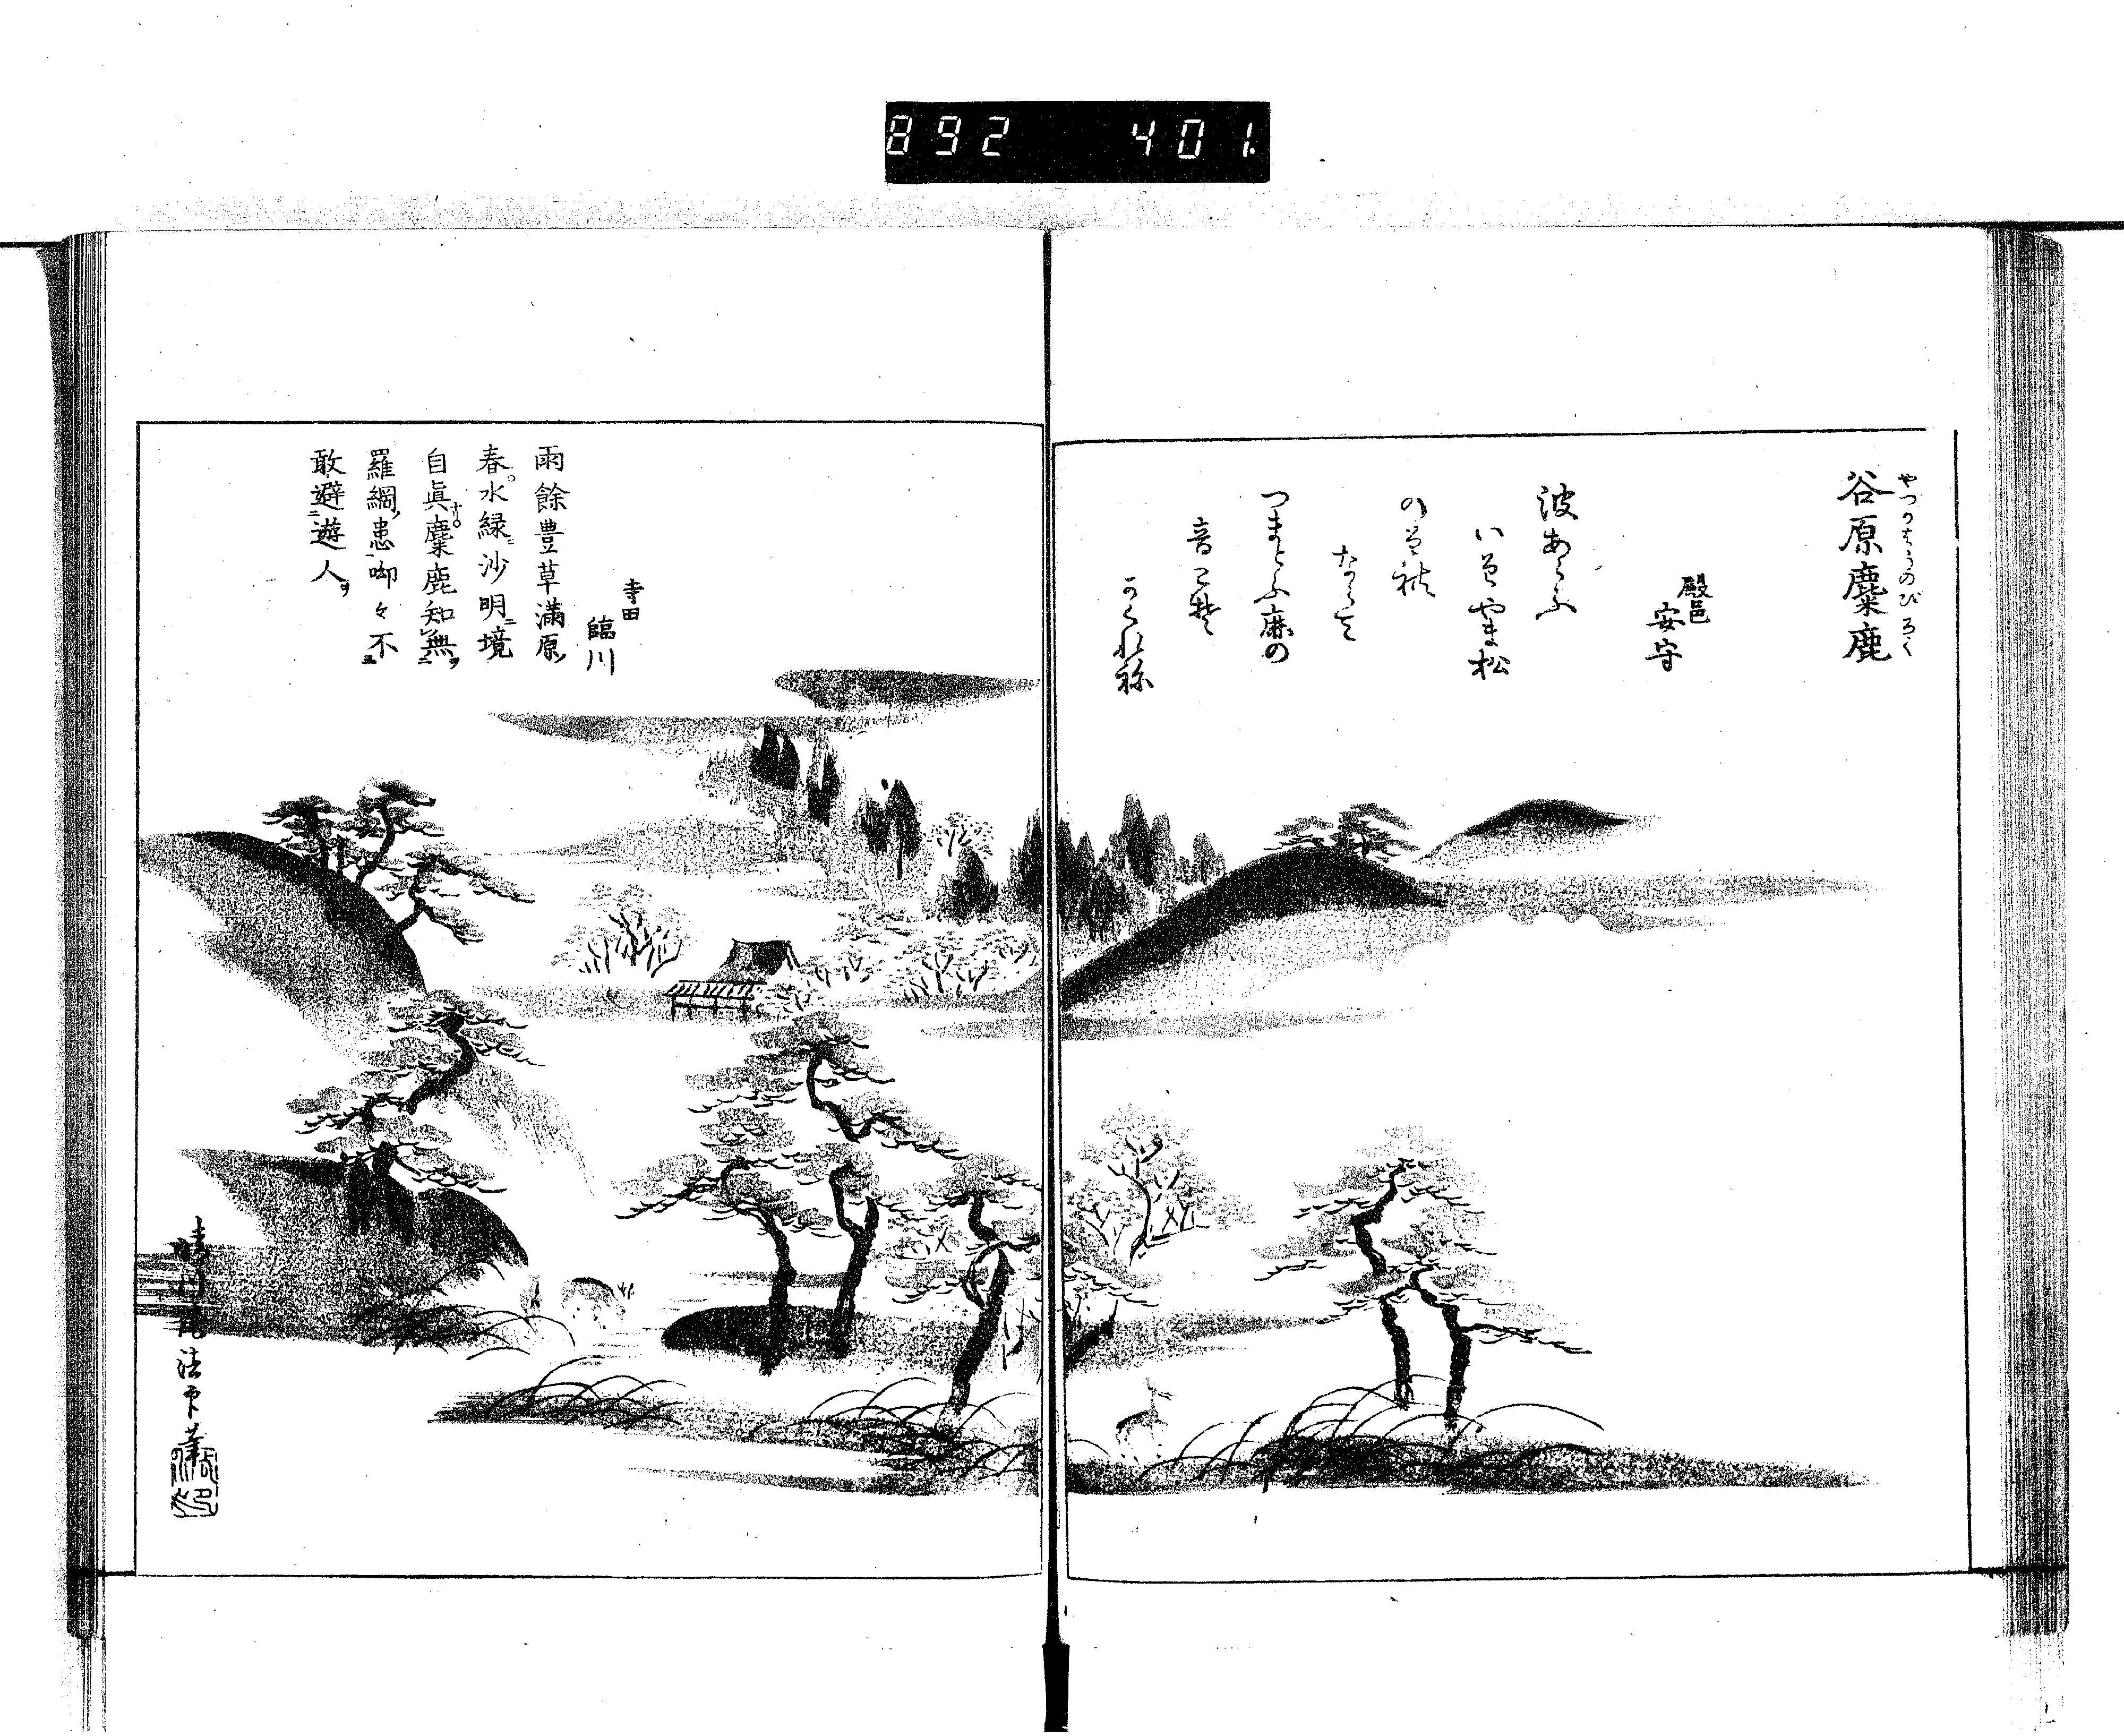 892 401
谷原麋鹿
やつかはらのびろく
殿邑
安守
波あらふ
いそやま松
のそれ
ならて
つまとふ鹿の
音こそ
かくれね
寺田
臨川
雨餘豊草滿原
春水緑沙明境
自眞麋鹿知無
羅網患呦々不
敢避遊人
晴川院法印筆